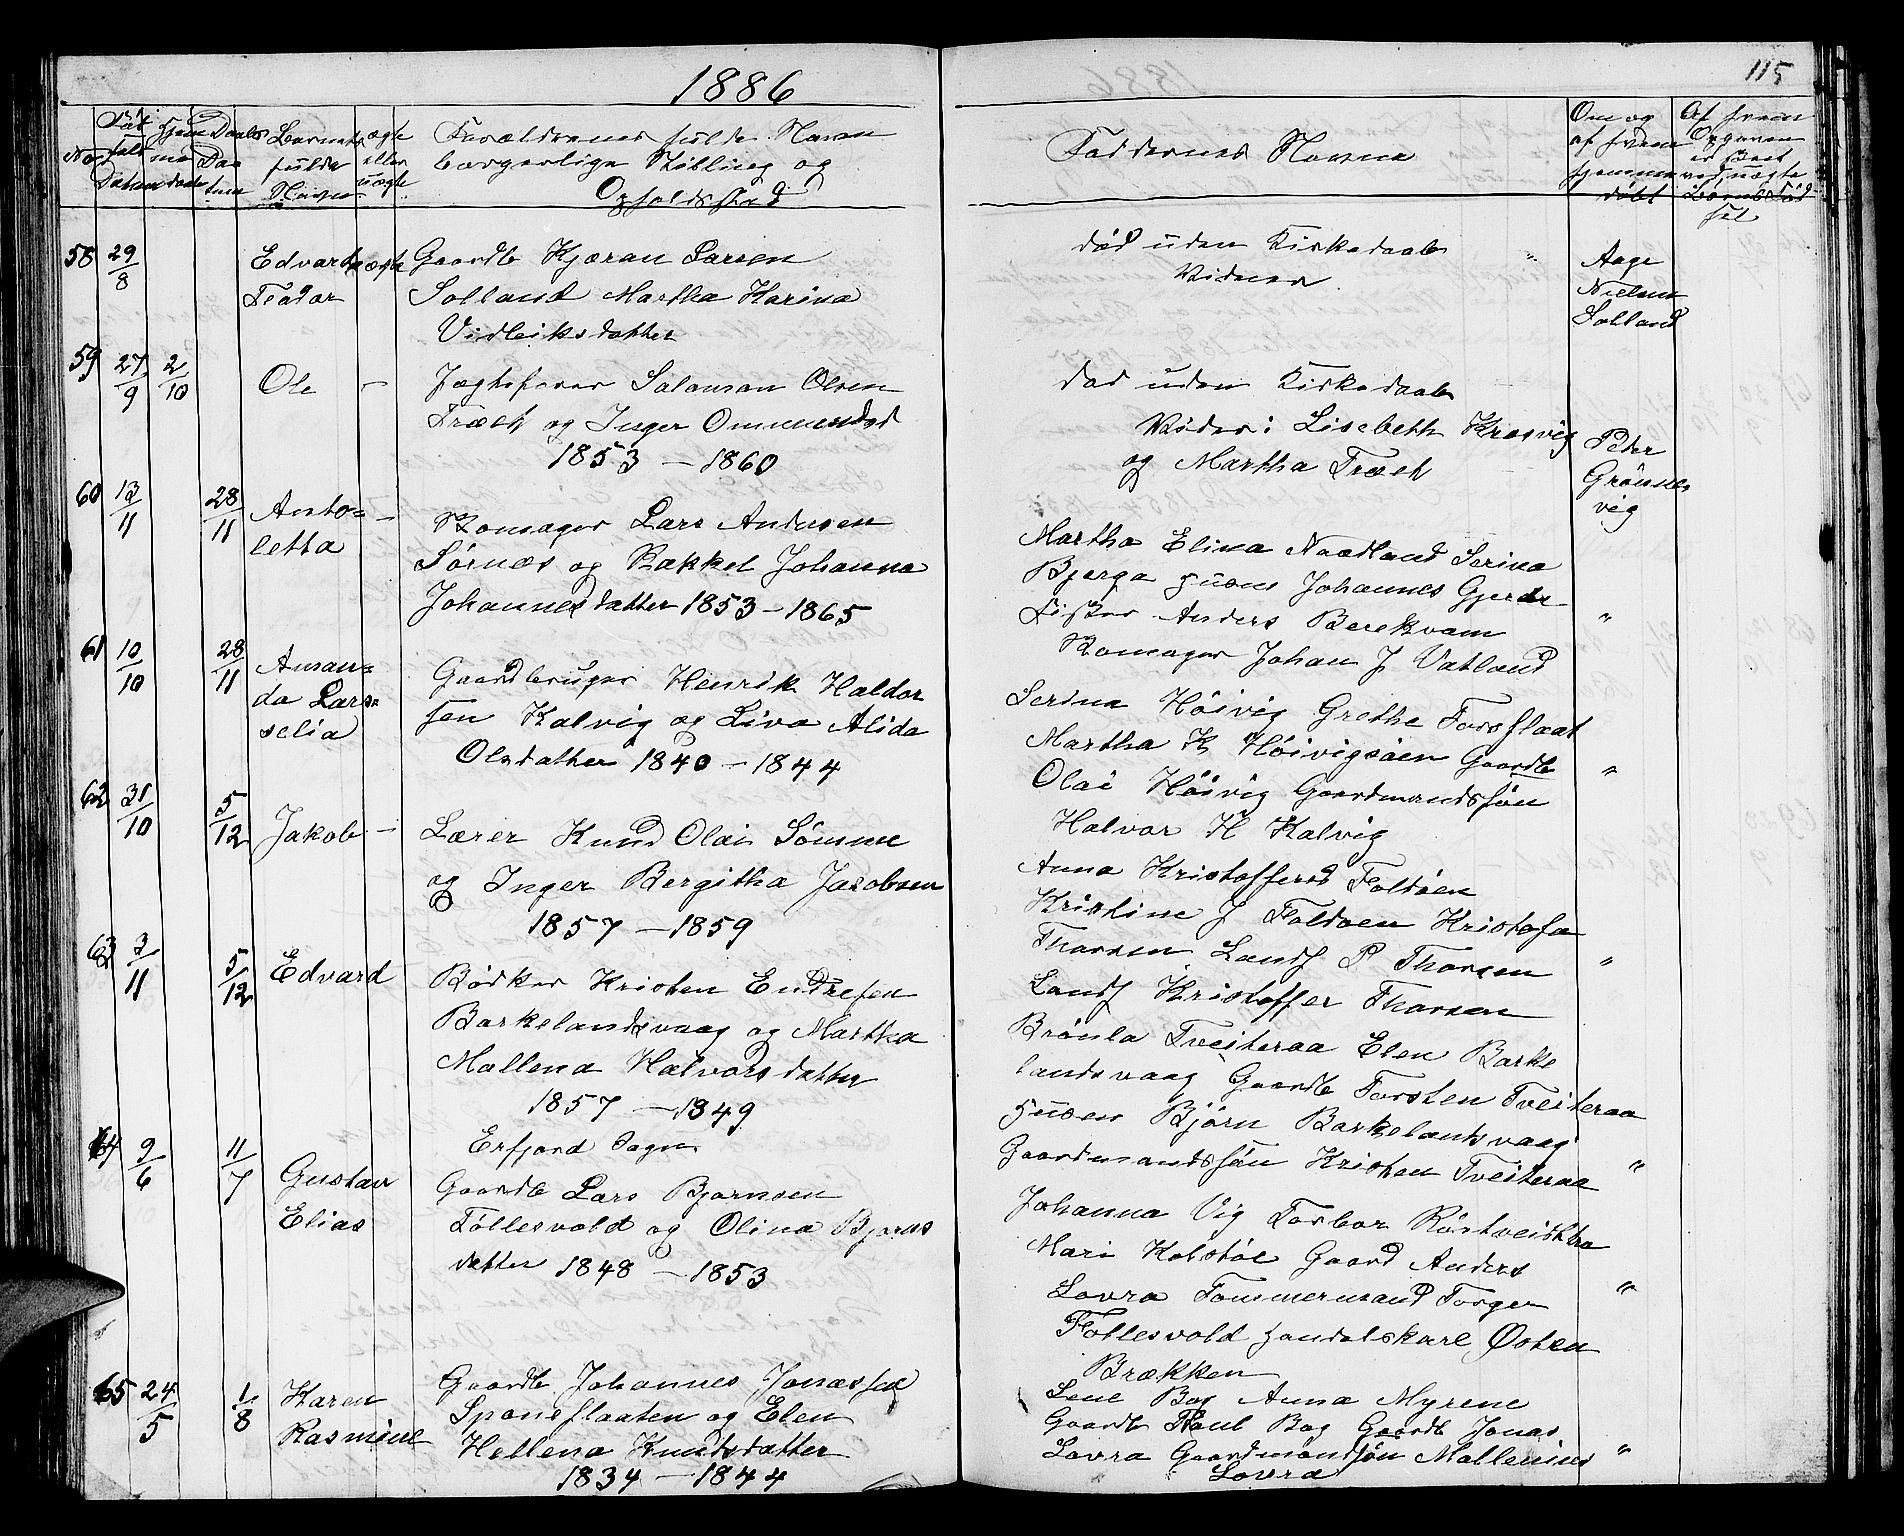 1886
115
No
Født
Børnets
fulde
Navn
ægte
eller
uægte
Forældrenes fulde Navn
borgerlige Stilling og
Opholdssted
Faddernes Navne
Om og
af hvem
hjemme
døbt
58 29/8 Edvard ægte Gaardb Kjæran Larsen
Teodor Solland Martha Karina
Vidleiksdatter
død uden Kirkedaab
Vidner
Aage
Nielsen
Solland
59 27/9 2/10 Ole - Jægtefører Salomon Olsen
Træet og Inger Ommundsd
1853 - 1860
død uden Kirkedaab
Vidner: Lisebeth Krosvig
og Martha Træet
Peter
Grønnes
vig
60 13/11 28/11 Anto= - Skomager Lars Andersen
letta Sørnæs og Rakkel Johanna
Johannesdatter 1853 - 1865
Martha Elina Naadland Serina
Bjerga Husm Johannes Gjerde
Fisker Anders Berekvam "
Skomager Johan J Vatland
61 10/10 28/11 Aman=
da Lars=
selia
Gaardbruger Henrik Haldor
sen Kalvig og Liva Alida
Olsdatter 1840 - 1844
Serina Høivig Grethe Forsflaat
Martha K Høivigsøen Gaardb "
Olai Høivig Gaardmandssøn
Halvor H Kalvig
62 31/10 5/12 Jakob - Lærer Knud Olai Sømme
og Inger Bergitha Jacobsen
1857 - 1859
Anna Kristoffersd Foldøen
Kristine J Foldøen Kristofa
Thorsen Landh P Thorsen "
Landh Kristoffer Thorsen
63 3/11 5/12 Edvard Bødker Kristen Endresen
Barkelandsvaag og Martha
Mallena Halvorsdatter
1857 - 1849
Brønla Tveiteraa Elen Barke
landsvaag Gaardb Torsten Tveiteraa
Husm Bjørn Barkelandsvaag
Gaardmandssøn Kristen Tveiteraa "
Erfjord Sogn
64 9/6 11/7 Gustav
Elias
Gaardb Lars Bjørnsen
Tøllesvold og Olina Bjørns
datter 1848 - 1853
Johanna Vig Torbor
Mari Kolstøe Gaard Anders
Lovra Tømmermand Torger "
Føllesvold Handelskarl Østen
Brækken
65 24/5 1/8 Karen
Rasmine
Gaardb Johannes Jonassen
Spaneflaaten og Elen
Hellena Knudsdatter
1834 - 1844
Lene Bog Anna Myrene
Gaardb Poul Bog Gaardb Jonas
Lovra Gaardmandssøn Mallenius "
Lovra